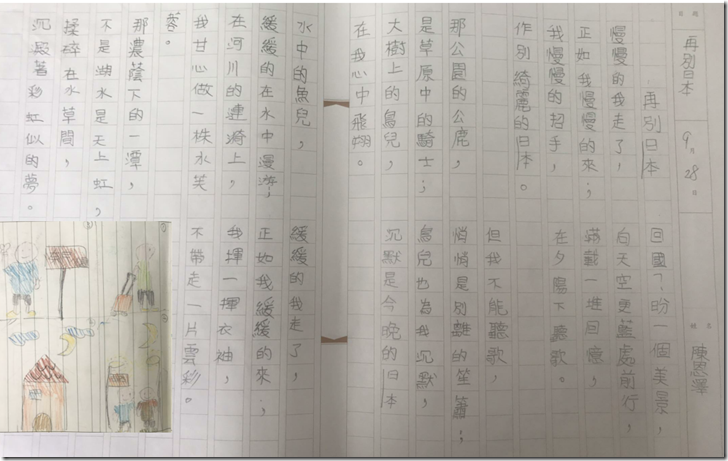 日期
再別日本
9月28日
姓名
陳恩澤
再別日本
慢慢的我走了,
正如我慢慢的來;
我慢慢的招手,
作別綺麗的日本。
那公園的公鹿,
是草原中的騎士;
大樹上的鳥兒,
在我心中飛翔。
水中的魚兒,
緩緩的在水中漫游;
在河川的漣漪上,
我甘心做一株水芙
蓉。
那濃蔭下的一潭,
不是湖水是天上虹,
揉碎在水草間,
沉澱著彩虹似的夢。
回國?盼一個美景,
向天空更藍處前行,
滿載一堆回憶,
在夕陽下聽歌。
但我不能聽歌,
悄悄是別離的笙簫;
鳥兒也為我沉默,
沉默是今晚的日本
緩緩的我走了,
正如我緩緩的來;
我揮一揮衣袖,
不帶走一片雲彩。